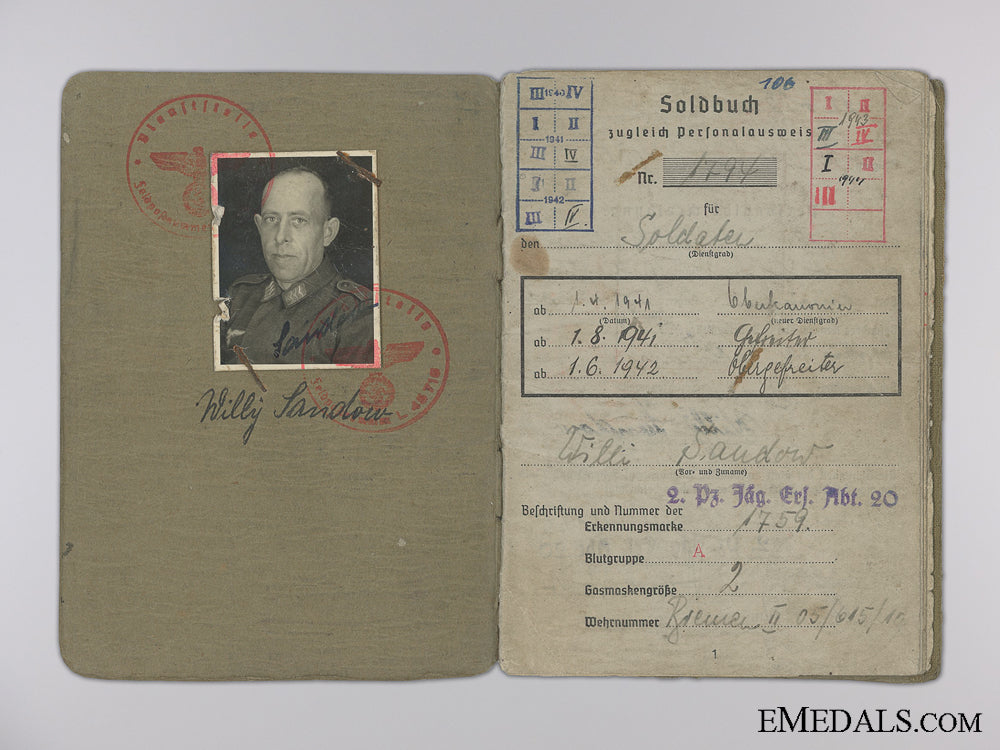 Dienststelle
Feldpostnummer
Sandow
Dienststelle
Willy Sandow
106
III 1940 IV
I II
1941
III IV
I II
1942
III IV.
I II
1943
III IV
I II
1944
III
Soldbuch
zugleich Personalausweis
Nr. 1494
für
den Soldaten
(Dienstgrad)
ab 1.4.1941 Oberkanonier
(Datum) (neuer Dienstgrad)
ab 1.8.1941 Gefreiter
ab 1.6.1942 Obergefreiter
Willi Sandow
(Vor- und Zuname)
2. Pz. Jäg. Ers. Abt. 20
Beschriftung und Nummer der
Erkennungsmarke 1759.
Blutgruppe A
Gasmaskengröße 2
Wehrnummer Bremen II 05/615/
1
EMEDALS.COM